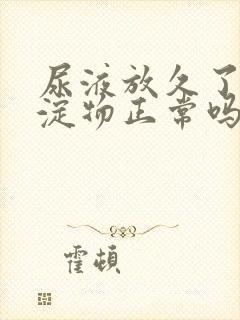 尿液放久了
淀物正常吗
霍顿